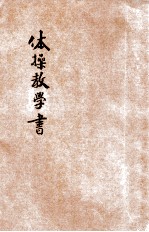 体操教學書